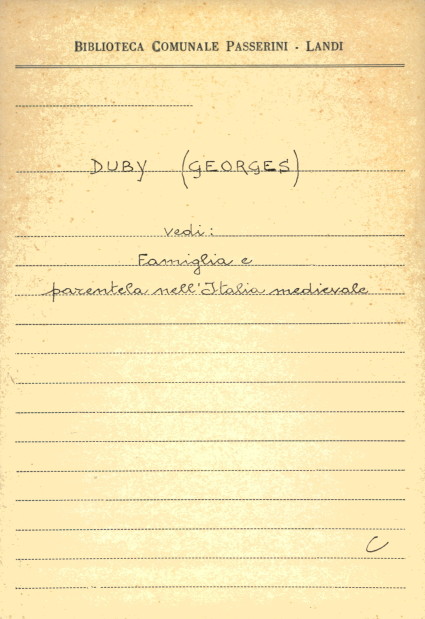 BIBLIOTECA COMUNALE PASSERINI - LANDI
DUBY (GEORGES)
vedi:
Famiglia e
parentela nell'Italia medievale
C